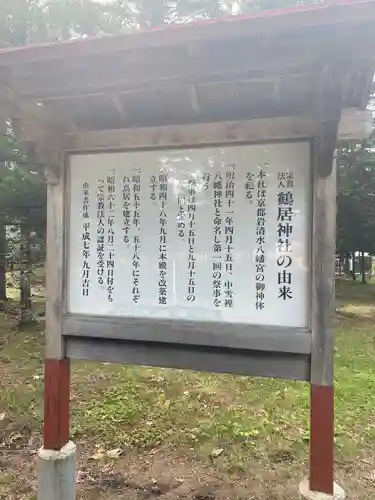 宗教法人 鶴居神社の由来
一、本社は京都岩清水八幡宮の御神体
を祀る。
一、明治四十一年四月十五日、中雪裡
八幡神社と命名し第一回の祭事を
行う
祭事は四月十五日と九月十五日の
二回と定める。
一、昭和四十八年九月に本殿を改築建
立する。
一、昭和五十五年、五十八年にそれぞ
れ鳥居を建立する。
一、昭和六十二年八月二十四日付をも
って宗教法人の認証を受ける。
由来書作成 平成七年九月吉日